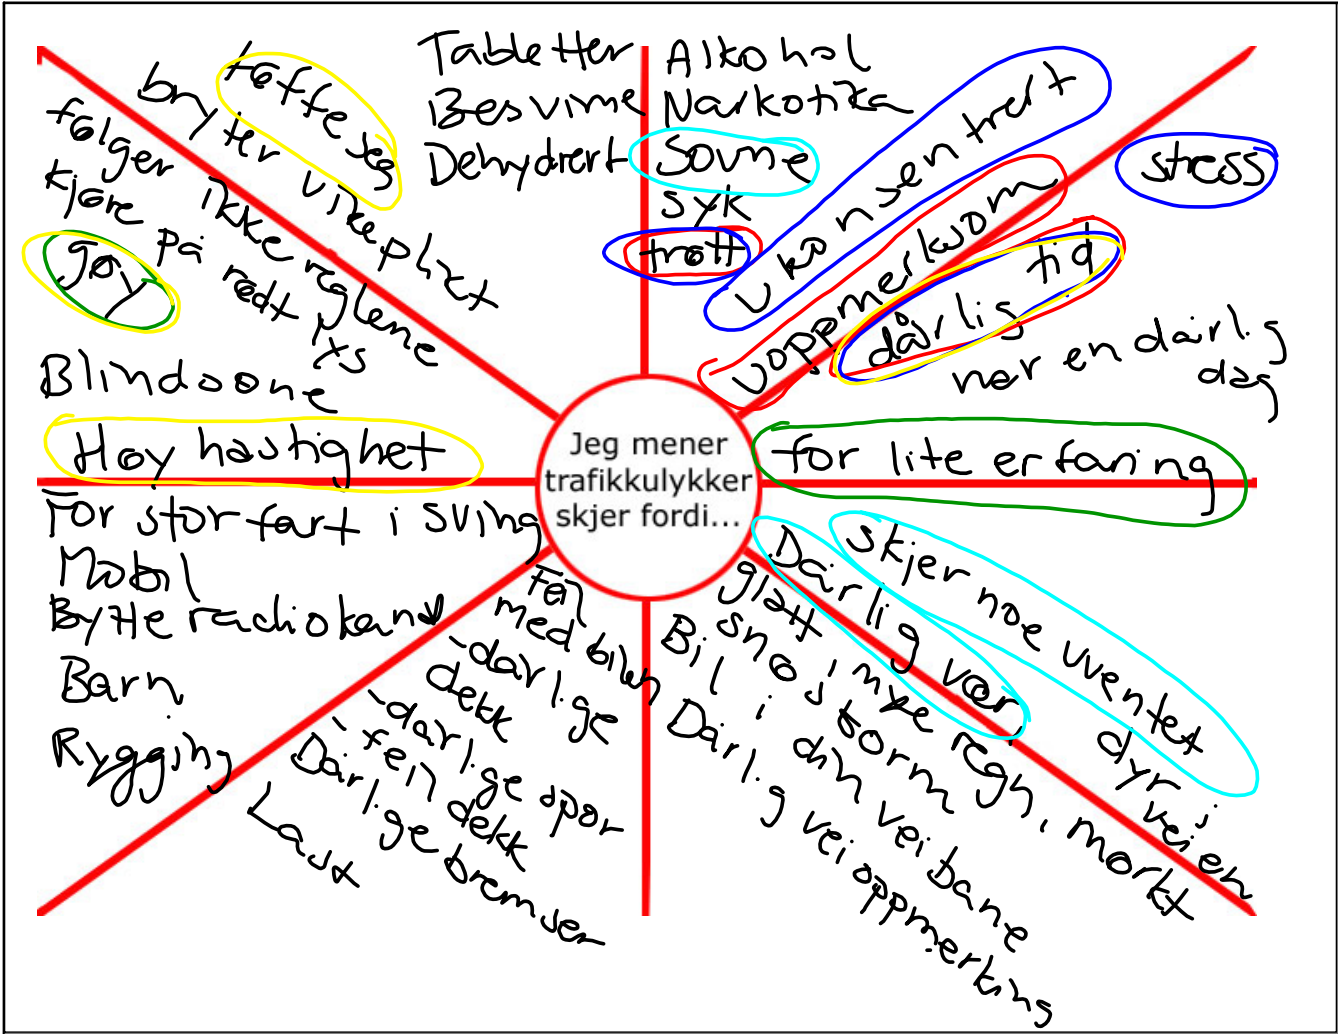 Jeg mener
trafikkulykker
skjer fordi...
Tabletter
Besvime
Dehydrert
Alkohol
Narkotika
Sovne
syk
trøtt
ukonsentrert
uoppmerksom
stress
dårlig tid
har en dårlig
dag
for lite erfaring
skjer noe uventet
dyr i
veien
Dårlig vær
glatt i mye regn, mørkt
snøstorm
Bil i din veibane
Dårlig veioppmerking
Feil
med bilen
-dårlige
dekk
-dårlige spor
-feil dekk
Dårlige bremser
Last
For stor fart i sving
Mobil
Bytte radiokanal
Barn
Rygging
Høy hastighet
Blindsone
gøy
kjøre på rødt lys
følger ikke reglene
bryter vikeplikt
tøffe seg